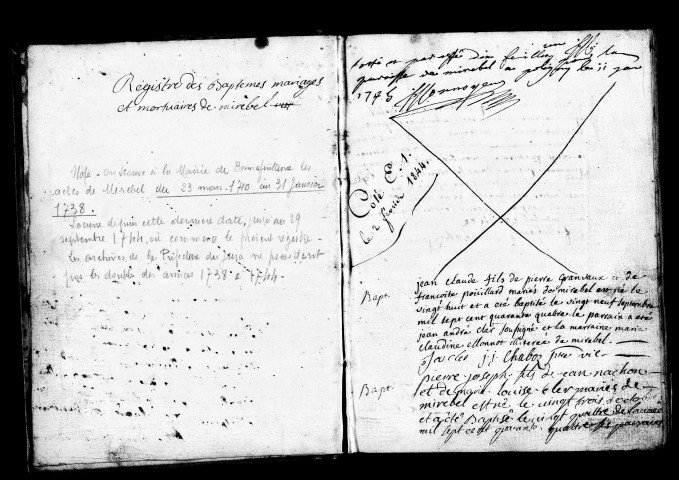 Registre des Baptemes mariages
et mortuaires de mirebel
Note - on trouve à la Mairie de Bonnefontaine les
actes de Mirebel du 23 mars 1710 au 31 Janvier
1738.
Lacune depuis cette dernière date, jusqu'au 29
septembre 1744, où commence le présent registre.
Les archives de la Préfecture du Jura ne possèdent
pas les doubles des années 1738 à 1744.
Cotté et paraffé dix feuillets
paroisse de mirebel a poligny le 11 jan
1745
Coté C. 1.
le 2 février 1844.
Bapt.
jean claude fils de pierre Granvaux et de
francoise pouillard mariés de mirebel est né le
vingt huit et a eté baptisé le vingt neuf septembre
mil sept cent quarante quatre le parrain a eté
jean andré cler soussigné et la marraine marie
claudine monnot illiterée de mirebel.
J a cler j. j. Chaboz ptre vic.
Bapt.
pierre joseph fils de jean nachon
et de louise cler mariés de
mirebel est né le vingt trois octobre
et a été Baptisé le vingt quattre de l'année
mil sept cent quarante quattre